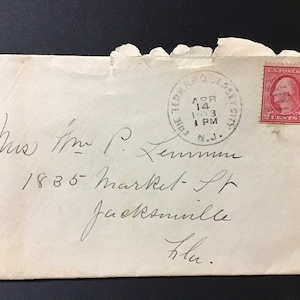 ERIE TERM. R.P.O. JERSEY CITY
APR
14
1 PM
N.J.
2 CENTS 2
Mrs Wm P. Lemmon
1835 Market St
Jacksonville
Fla.